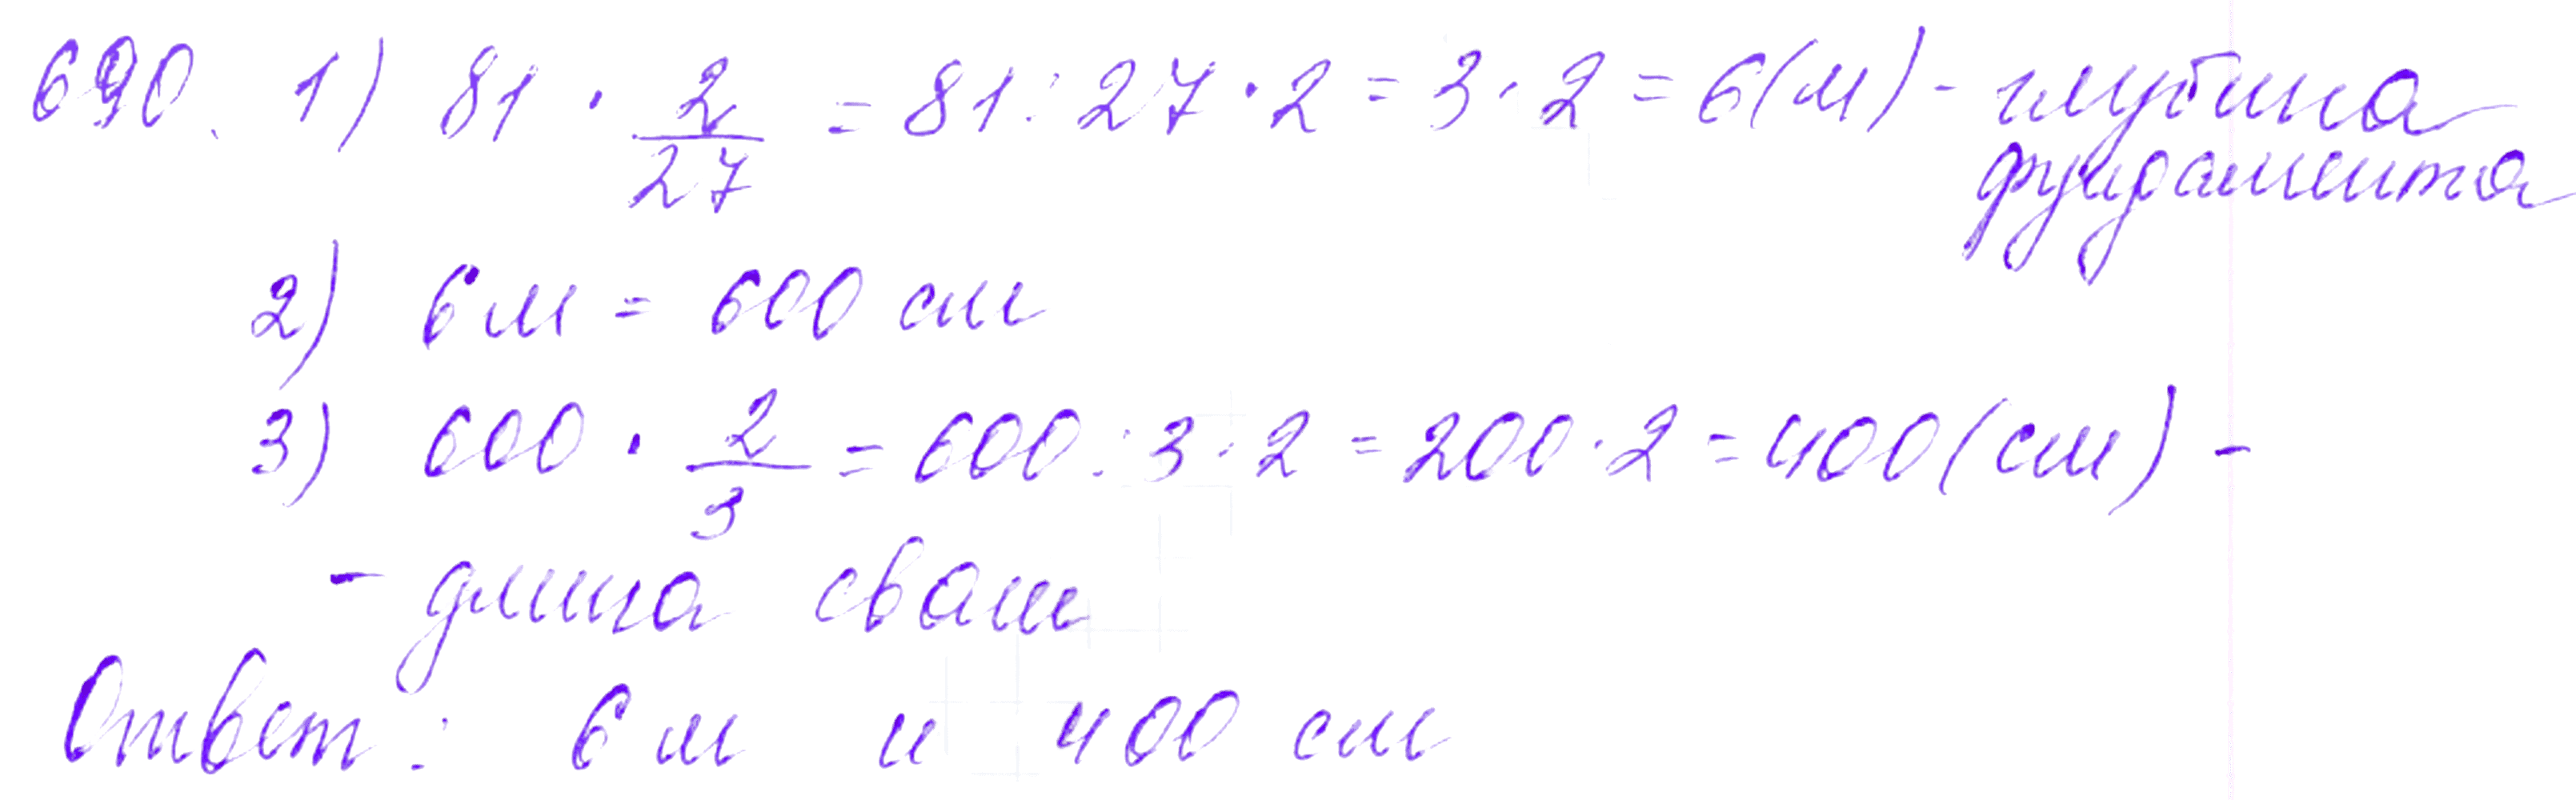 690. 1) 81 · 2/27 = 81 : 27 · 2 = 3 · 2 = 6 (м) - глубина
фундамента
2) 6 м = 600 см
3) 600 · 2/3 = 600 : 3 · 2 = 200 · 2 = 400 (см) -
- длина сваи
Ответ: 6 м и 400 см